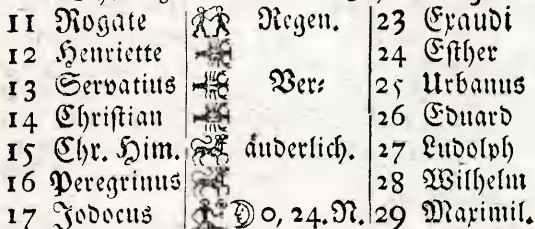 11 Rogate Regen. 23 Exaudi
12 Henriette 24 Esther
13 Servatius Ver: 25 Urbanus
14 Christian 26 Eduard
15 Chr. Him. äuderlich. 27 Ludolph
16 Peregrinus 28 Wilhelm
17 Jodocus 0, 24. N. 29 Maximil.